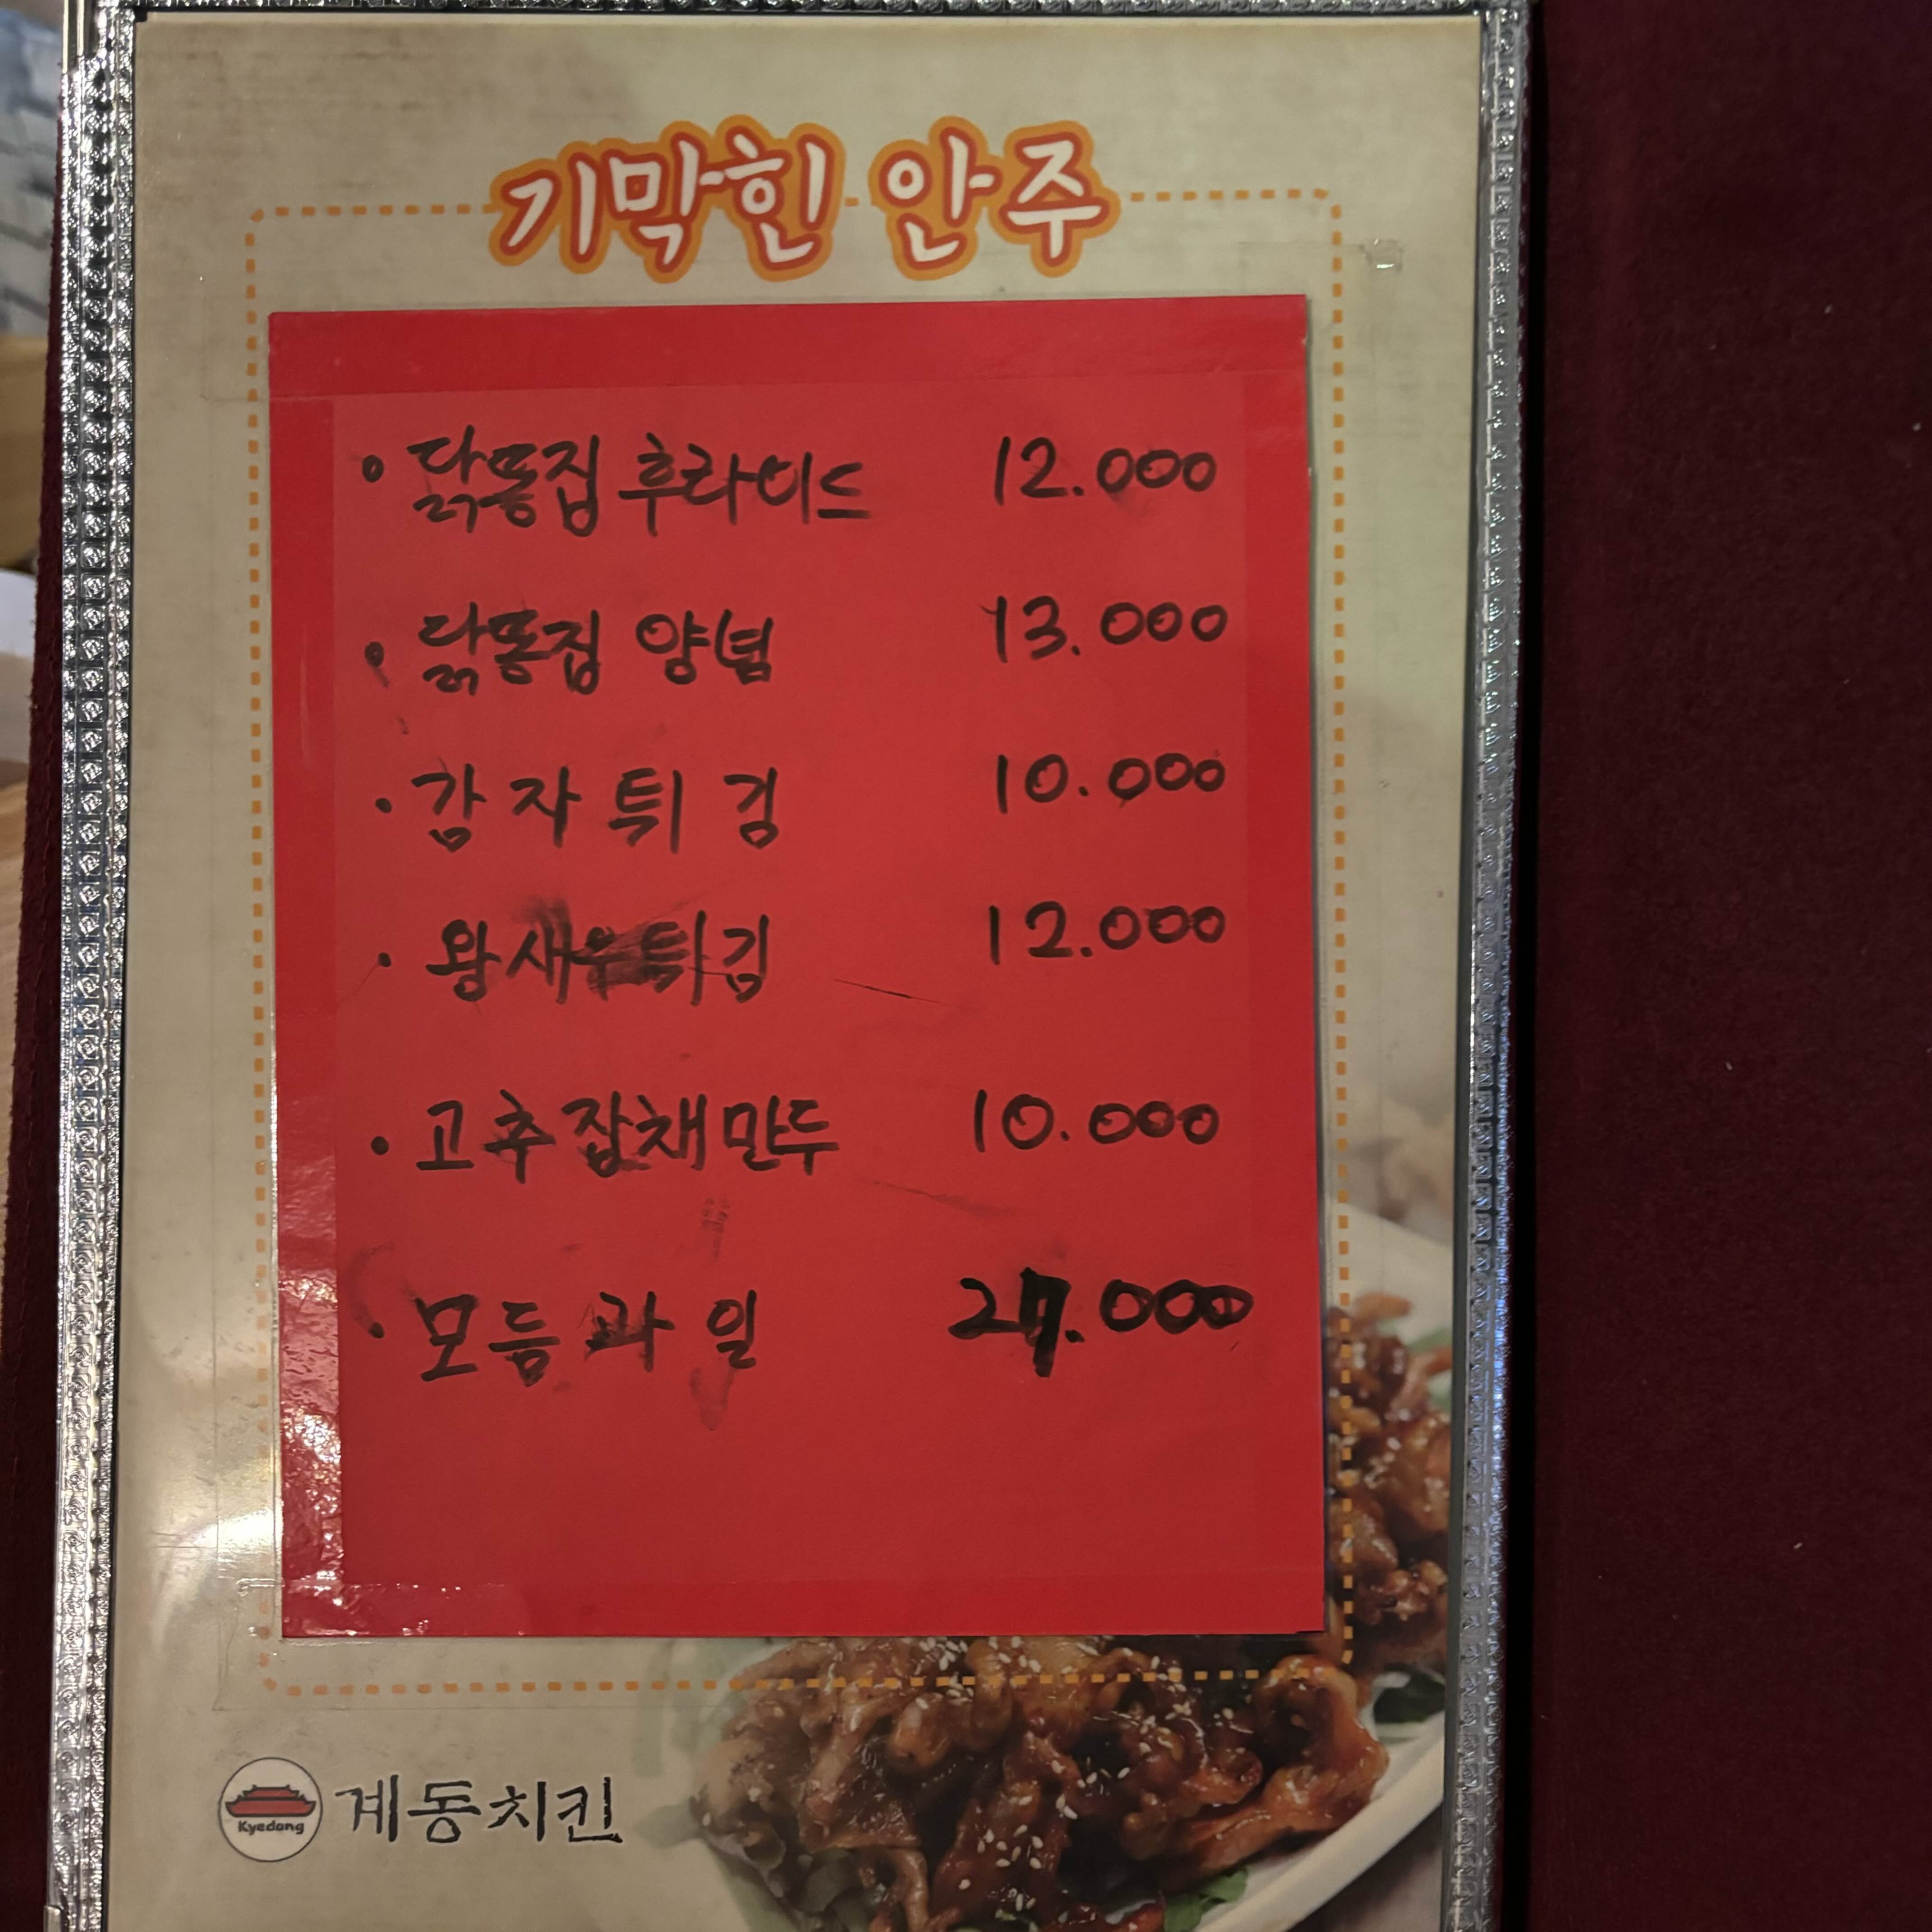 기막힌 안주
• 닭똥집 후라이드 12.000
• 닭똥집 양념 13.000
• 감자튀김 10.000
• 왕새우튀김 12.000
• 고추잡채만두 10.000
• 모듬과일 27.000
Kyedong 계동치킨